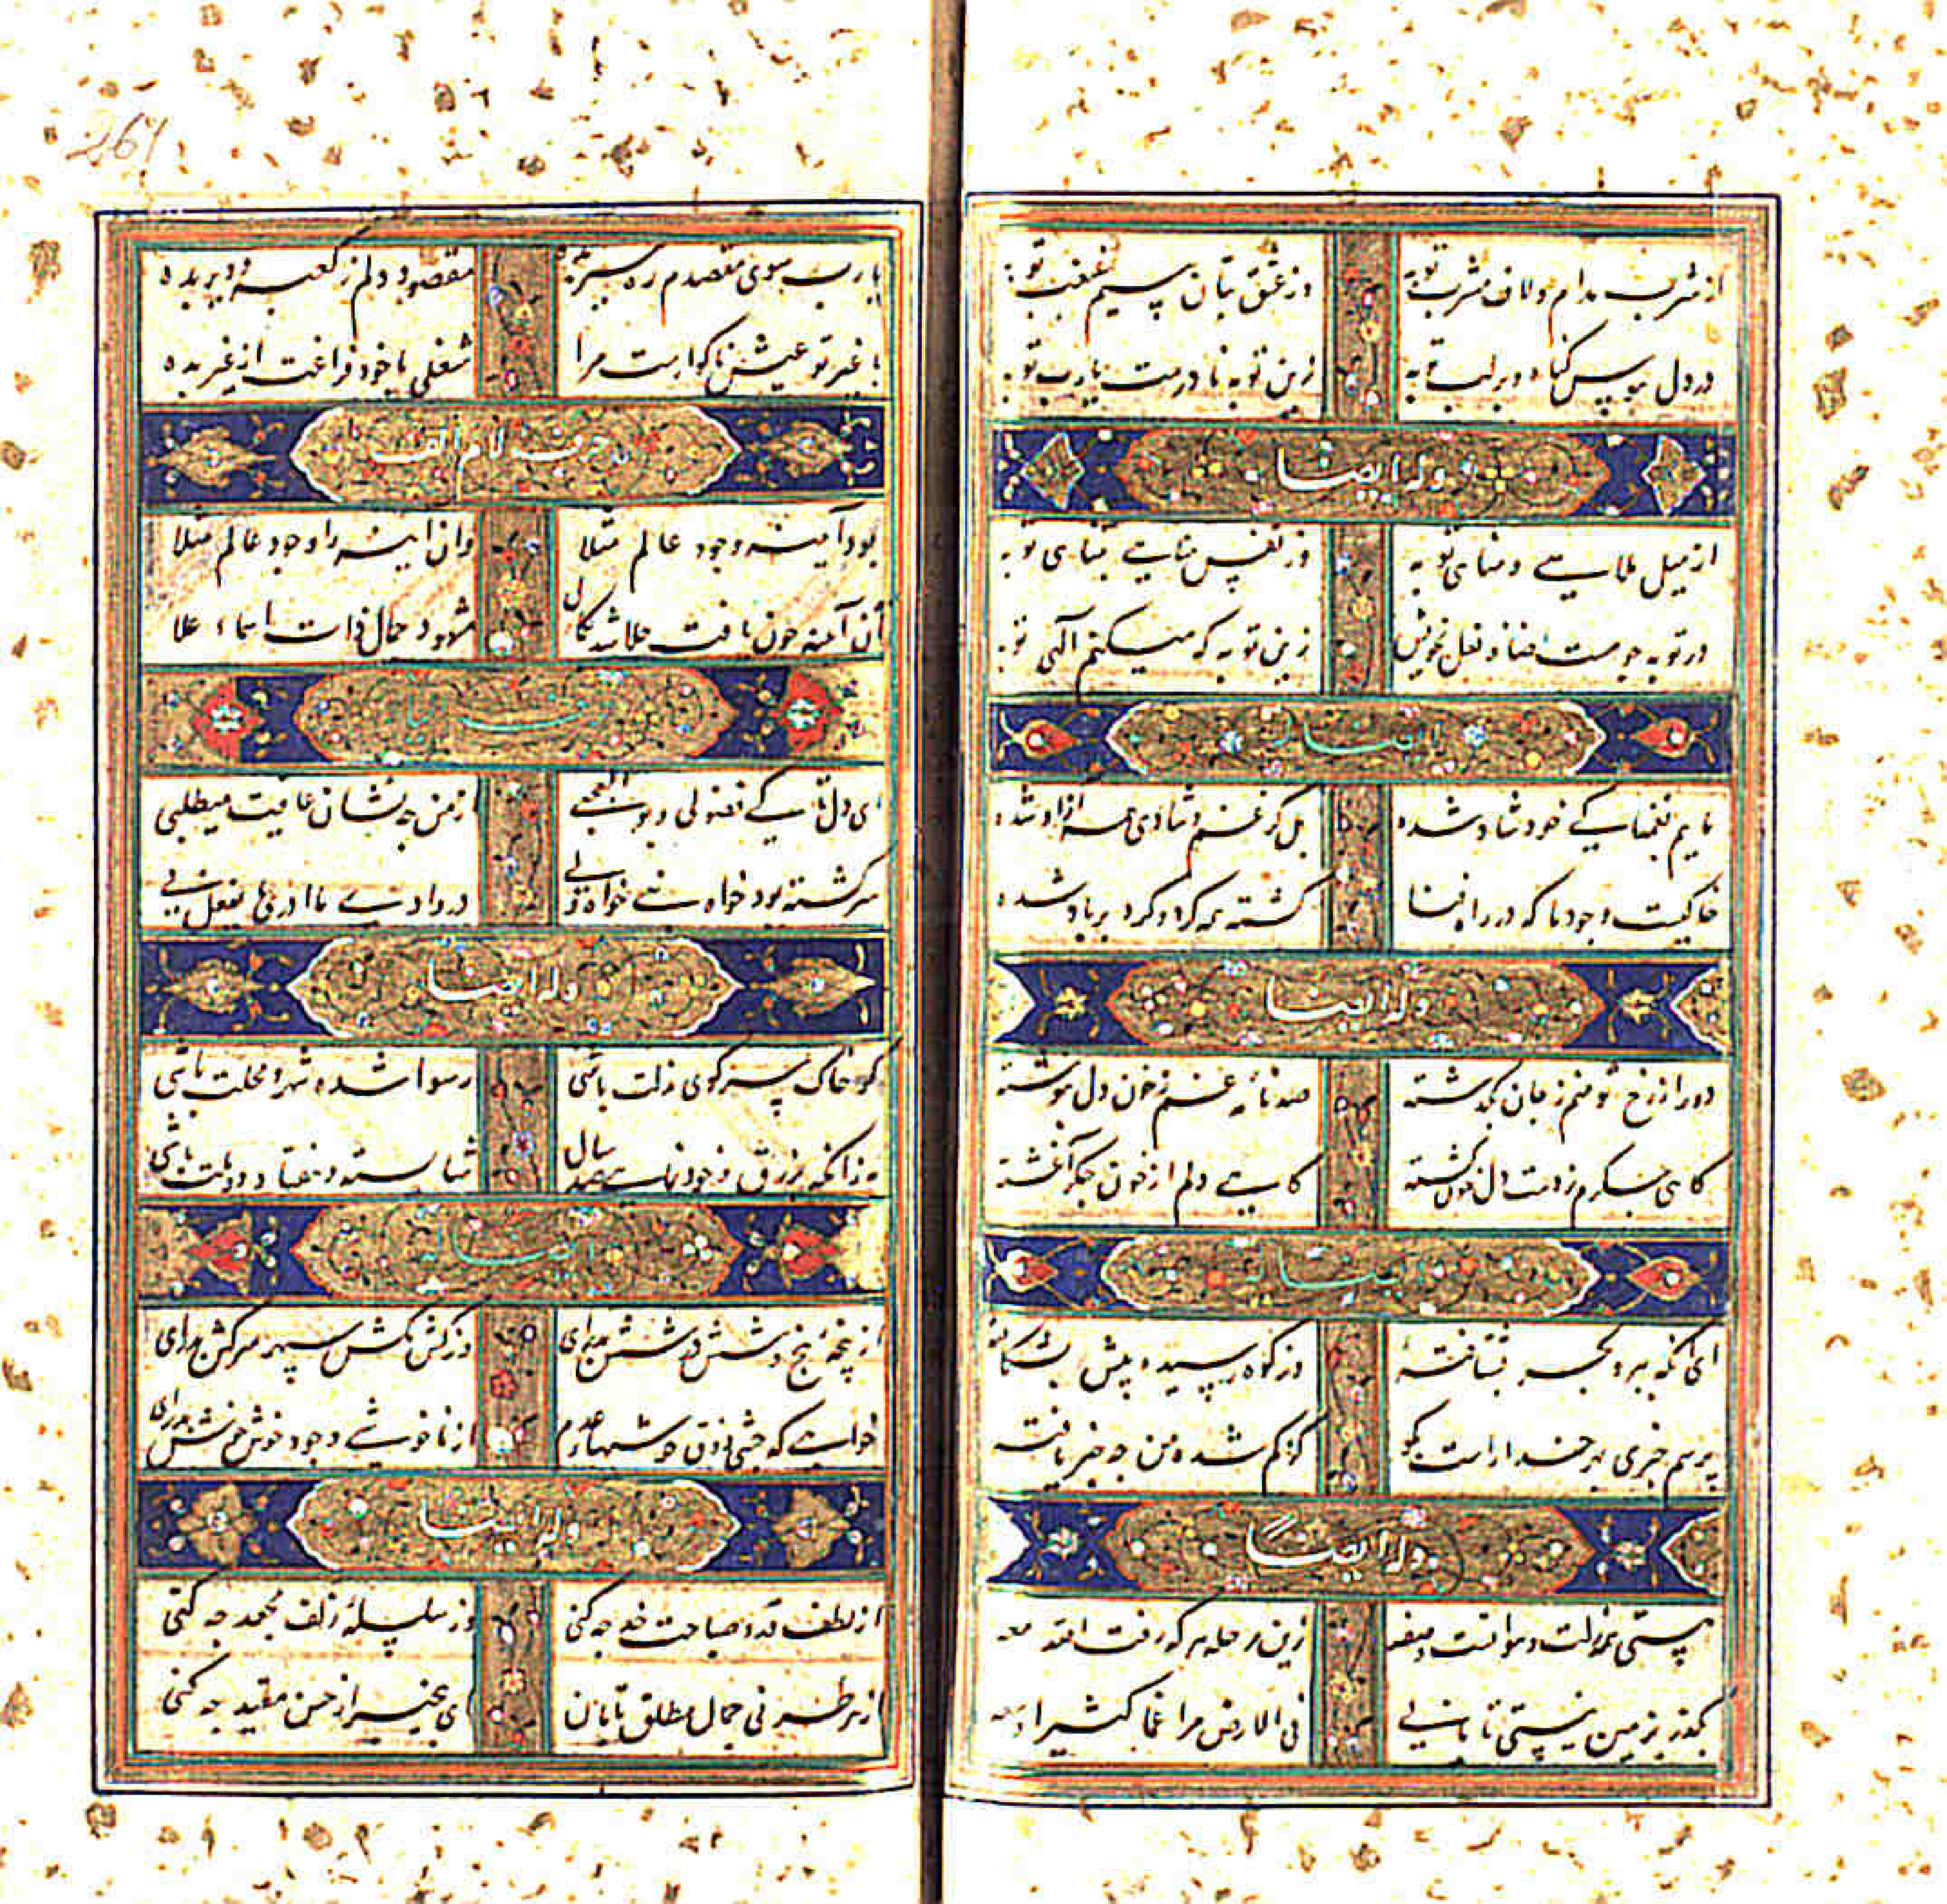 از شرب مدام و لاف مشرب توبه
وز عشق بتان سیم غبغب توبه
در دل هوس گناه و بر لب توبه
زین توبه نادرست یارب توبه
وله ایضا
از میل ملاهی و مناهی توبه
وز نفس تباهی توبه
در توبه چو هست اضافه فعل بخویش
زین توبه که میکنم الهی توبه
وله ایضا
مایم بغمهای خود شاد شده
بل کز غم و شادی همه آزاد شده
خاکیست وجود ما که در راه فنا
گشته همه گرد و گرد بر باد شده
وله ایضا
دور از رخ تو منم ز جان بگذشته
صد نامه غم ز خون دل بنوشته
گاهی جگرم ز دست دل خون گشته
گاهی دلم از خون جگر آغشته
وله ایضا
ای آنکه ببر و بحر بشتافته
وز کوه رسیده پیش بشکافته
پرسم خبری بهر خدا راست بگو
کز گم شده من چه خبر یافته
وله ایضاً
هستی همه ذلت و
زین مرحله هر که رفت
بگذر بزمین نیستی تا یابی
فی الارض مراغما کثیرا و سعه
267
یارب سوی مقصدم ره سیر بده
مقصود دلم ز کعبه و دیر بده
با غیر تو عیش ناگوارست مرا
شغلی با خود فراغت از غیر بده
حرف لام الف
بود آینه وجود عالم مثلا
وان آینه را وجود عالم مثلا
آن آینه چون یافت جلا شد کالی
مشهود جمال ذات اسماء علا
حرف الیا
ای دل تا کی فضولی و بوالعجبی
از من چه نشان عافیت میطلبی
سرگشته بود خواه نبی خواه ولی
در وادی ما ادری ما یفعل بی
وله ایضا
گر خاک سر کوی مذلت باشی
رسوا شده شهر و محلت باشی
به زانکه بزرق و خودنمایی صد سال
شایسته هفتاد و دو ملت باشی
وله ایضا
از پنجه پنج و شش و شش بدرآی
وز کش مکش سپهر سرکش بدرآی
خواهی که چشی ذوق خوشیهای عدم
از ناخوشی وجود خوش خوش بدرآی
وله ایضا
از لطف قد و صباحت خد چه کنی
وز سلسله زلف مجعد چه کنی
از هر طرفی جمال مطلق تابان
ای بیخبر از حسن مقید چه کنی